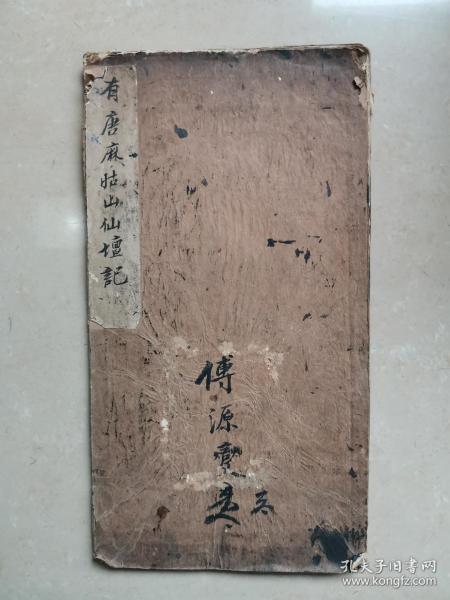 有唐麻姑山仙壇記
傅源
孔夫子旧书网
www.kongfz.com